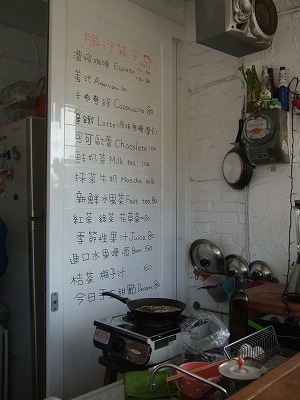 旅行箱子
濃縮咖啡 Espresso
美式 Americano 80
卡布奇諾 Cappuccino 80
拿鐵 Latte
可可歐蕾 Chocolate 100
鮮奶茶 Milk tea 100
抹茶牛奶 Matcha milk
新鮮水果茶 Fruit tea 80
紅茶 綠茶 花草茶
季節性果汁 Juice 80
進口水果啤酒 Beer 150
桔茶 梅子汁 60
今日手工甜點 Dessert 80